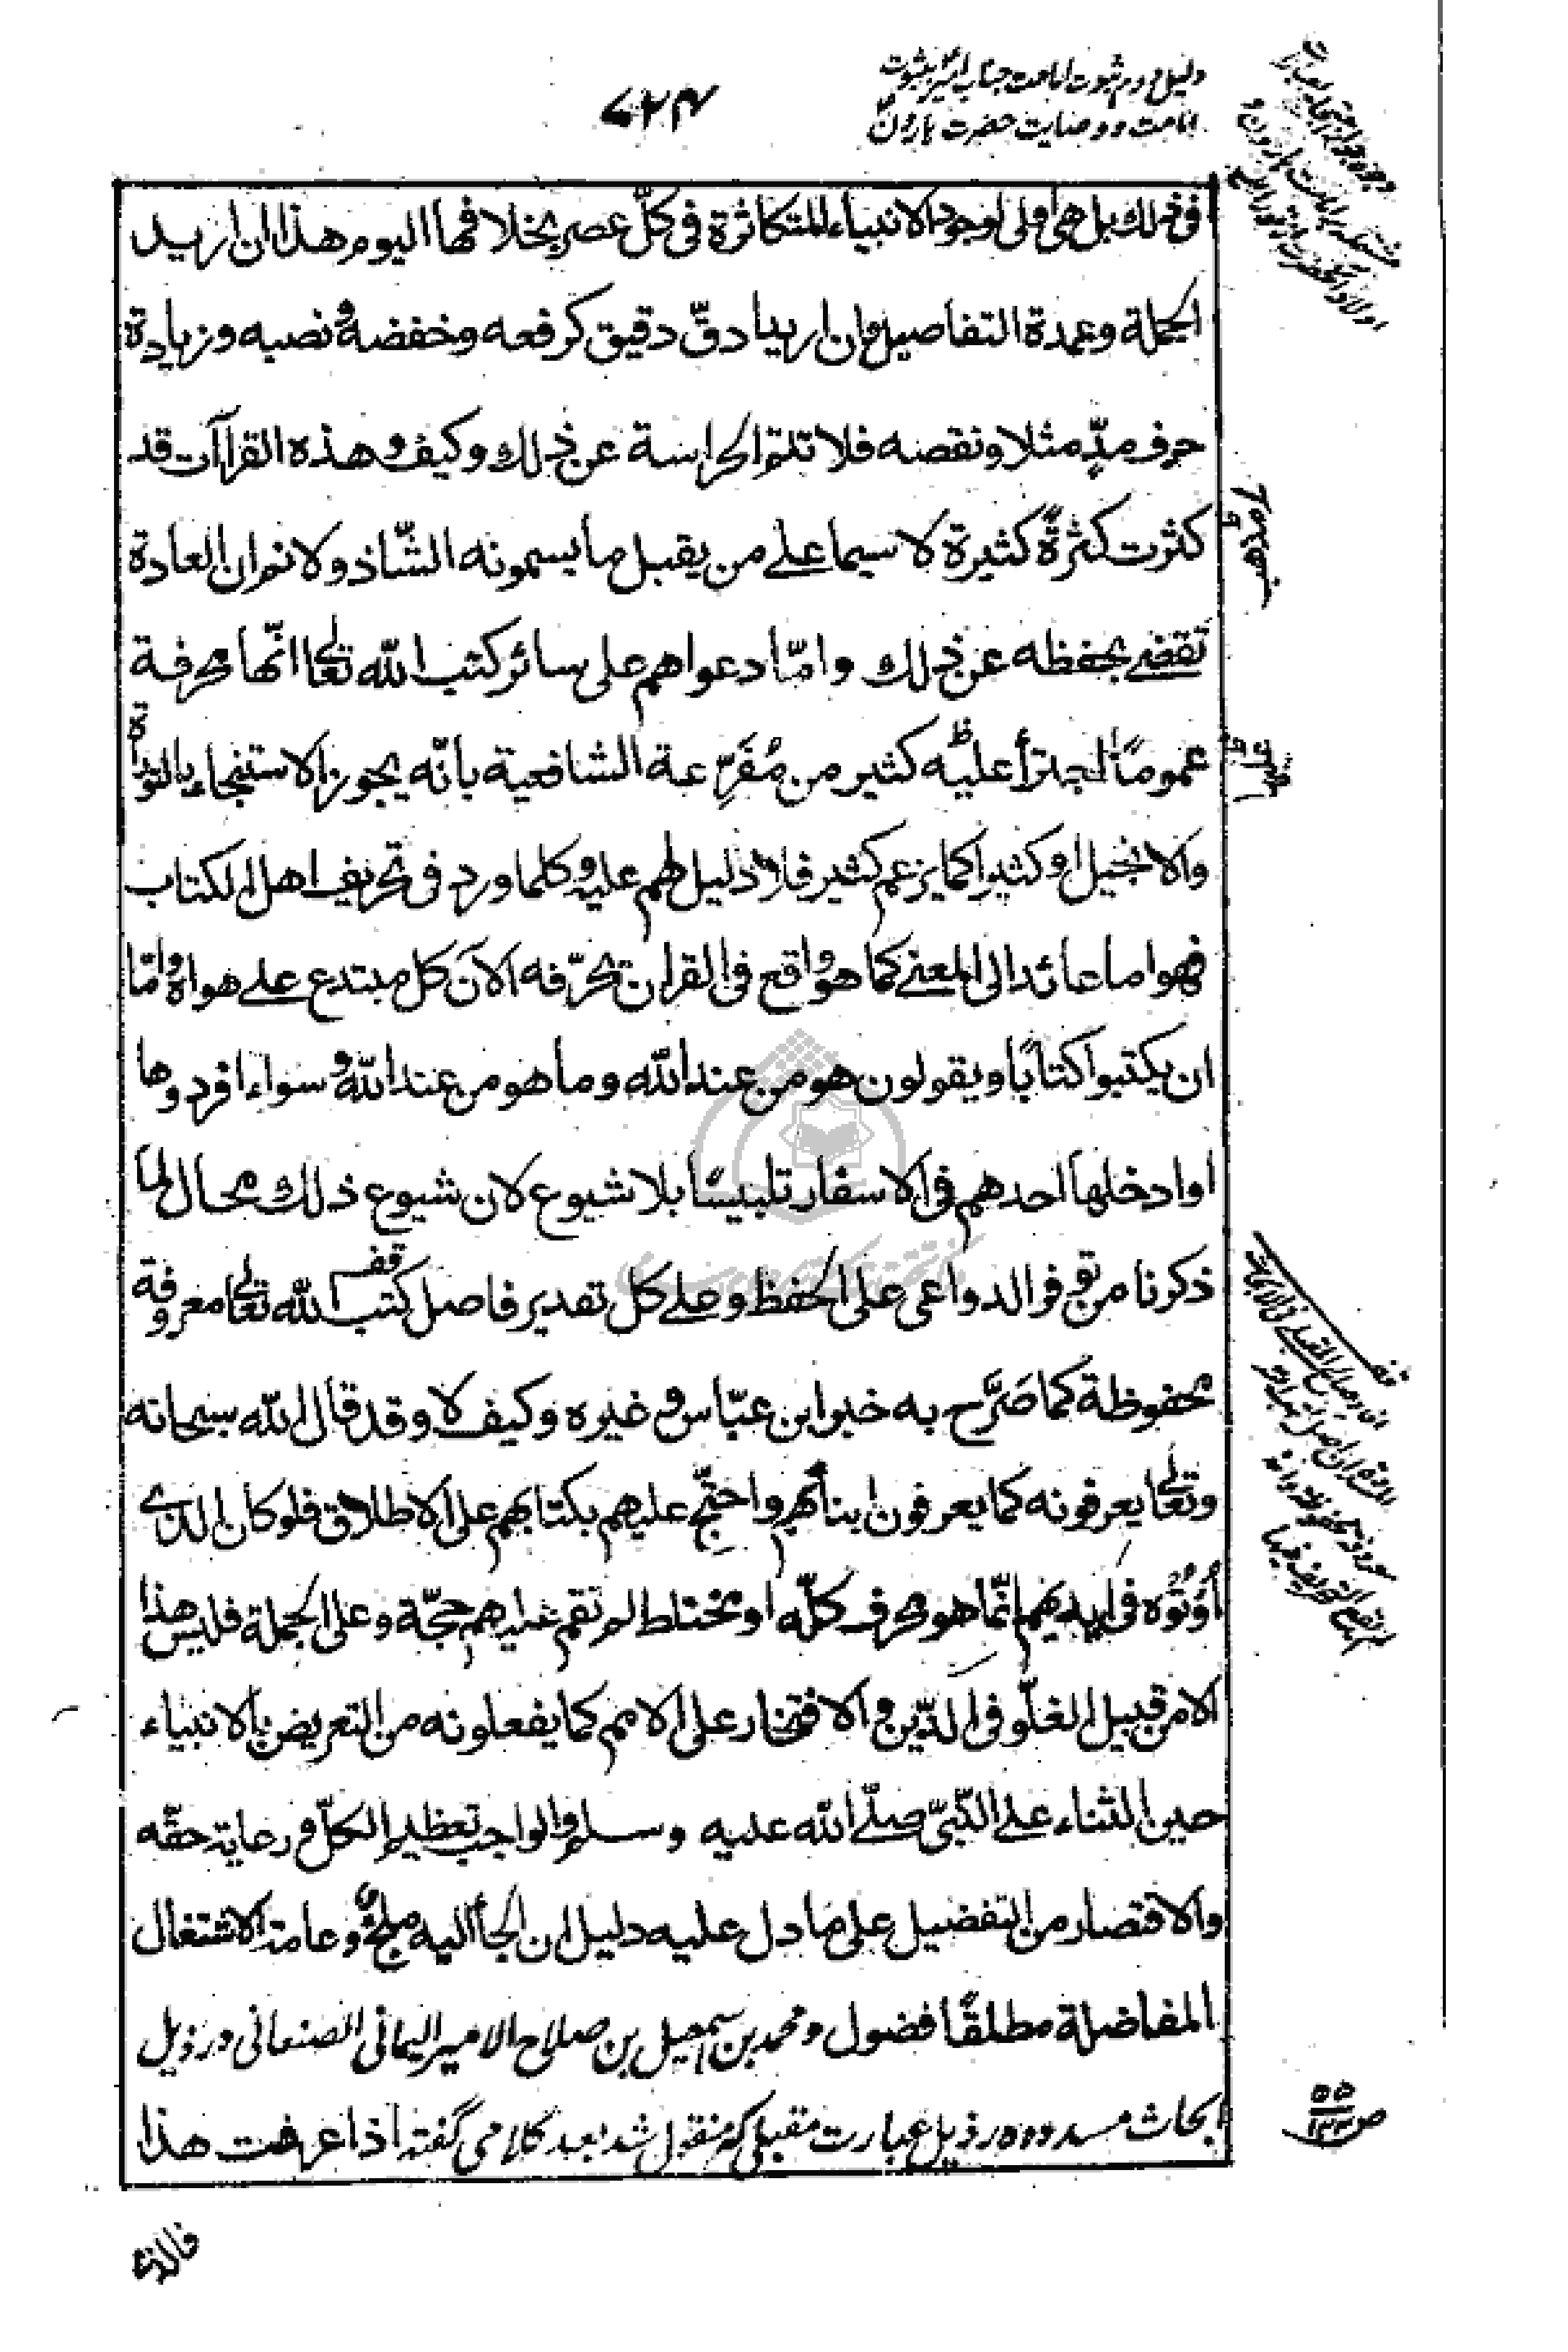 دلیل دوم ثبوت امامت جناب امیرؑ بثبوت
امامت و وصایت حضرت هارونؑ
۷۲۴
فی ذلك بل هی اولی لوجود الانبیاء المتكاثرة فی كلّ عصر بخلافها الیوم هذا ان ارید
الجملة وعمدة التفاصیل وان ارید ادقّ دقیق كرفعه وخفضه ونصبه وزیادة
حرف مدٍّ مثلا ونقصه فلا تلتم الحراسة عن ذلك وكیف وهذه القراآت قد
كثرت كثرةً كثیرة لا سیما علی من یقبل ما یسمونه الشّاذ ولا نم ان العادة
تقضی بحفظه عن ذلك وامّا دعواهم علی سائر كتب الله تعالی انّها محرفة
عمومًا اجترأ علیه كثیر من مُفَرِّعة الشافعیة بانّه یجوز الاستنجاء بالتوراة
والانجیل او كثیرا كما یزعم كثیر فلا دلیل لهم علیه وكلما ورد فی تحریف اهل الكتاب
فهو اما عائد الی المعنی كما هو واقع فی القران تحرّفه الآن كل مبتدع علی هواه وامّا
ان یكتبوا كتابًا ویقولون هو من عند الله وما هو من عند الله وسواء افردوها
او ادخلها احدهم فی الاسفار تلبیسًا بلا شیوع لان شیوع ذلك محال لما
ذكرنا من توفر الدواعی علی الحفظ وعلی كل تقدیر فاصل كتب الله تعالی معروفة
قف
محفوظة كما صَرَّح به خبر ابن عبّاس وغیره وكیف لا وقد قال الله سبحانه
وتعالی یعرفونه كما یعرفون ابنائهم واحتجّ علیهم بكتابهم علی الاطلاق فلو كان الذی
اُوْتُوْه فی ایدیهم انّما هو محرف كلّه او مختلط لم تقم علیهم حجّة وعلی الجملة فلیس هذا
الا من قبیل الغلّو فی الدّین والافتخار علی الامم كما یفعلونه من التعریض بالانبیاء
حین الثناء علی النّبیّ صلّی الله علیه وسلم والواجب تعظیم الكلّ ورعایة حقّه
والاقتصار من التفضیل علی ما دل علیه دلیل ان الجأ الیه ملجئ وعامة الاشتغال
المفاضلة مطلقًا فضول ومحمد بن سمعیل بن صلاح الامیر الیمانی الصنعانی در ذیل
ابحاث مسدده در ذیل عبارت مقبلی كه منقول شد بعد كلامی گفته اذا عرفت هذا
ص ۵۵/۱۳۳